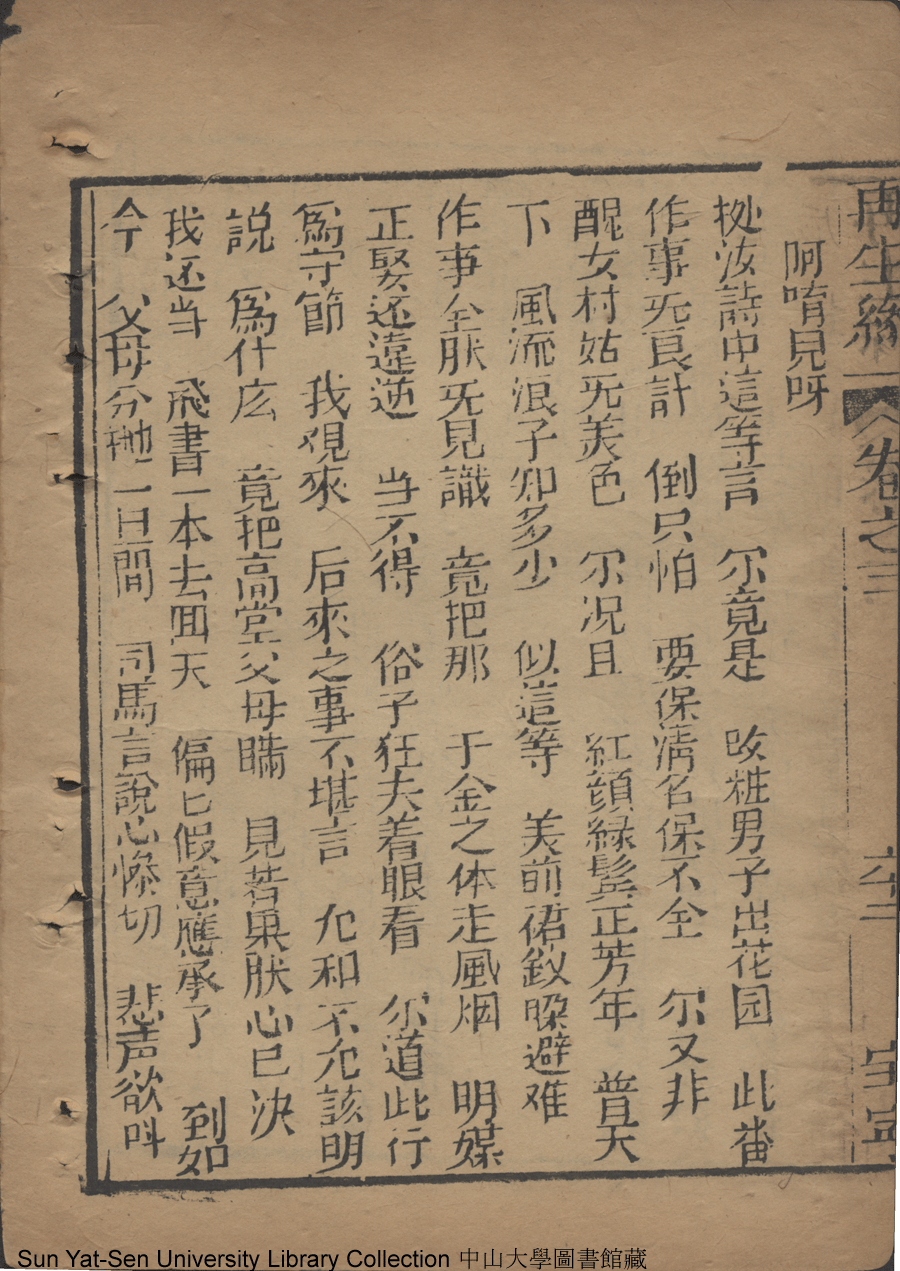 再生緣 卷之三
阿唷兒呀
拠汝詩中這等言 尔竟是 改粧男子出花园 此番
作事旡良計 倒只怕 要保清名保不全 尔又非
醜女村姑旡美色 尔况且 紅顔緑鬂正芳年 普天
下 風流浪子知多少 似這等 美前裙釵躱避难
作事全肰旡見識 竟把那 于金之体走風烟 明媒
正娶还違逆 当不得 俗子狂夫着眼看 尔道此行
爲守節 我观來 后來之事不堪言 允和不允該明
説 爲什庅 竟把高堂父母瞞 見若果肰心已决
我还当 飛書一本去囬天 偏匕假意應承了 到如
今 父母分抛一旦間 司馬言說心惨切 悲声欲呌
Sun Yat-Sen University Library Collection 中山大學圖書館藏